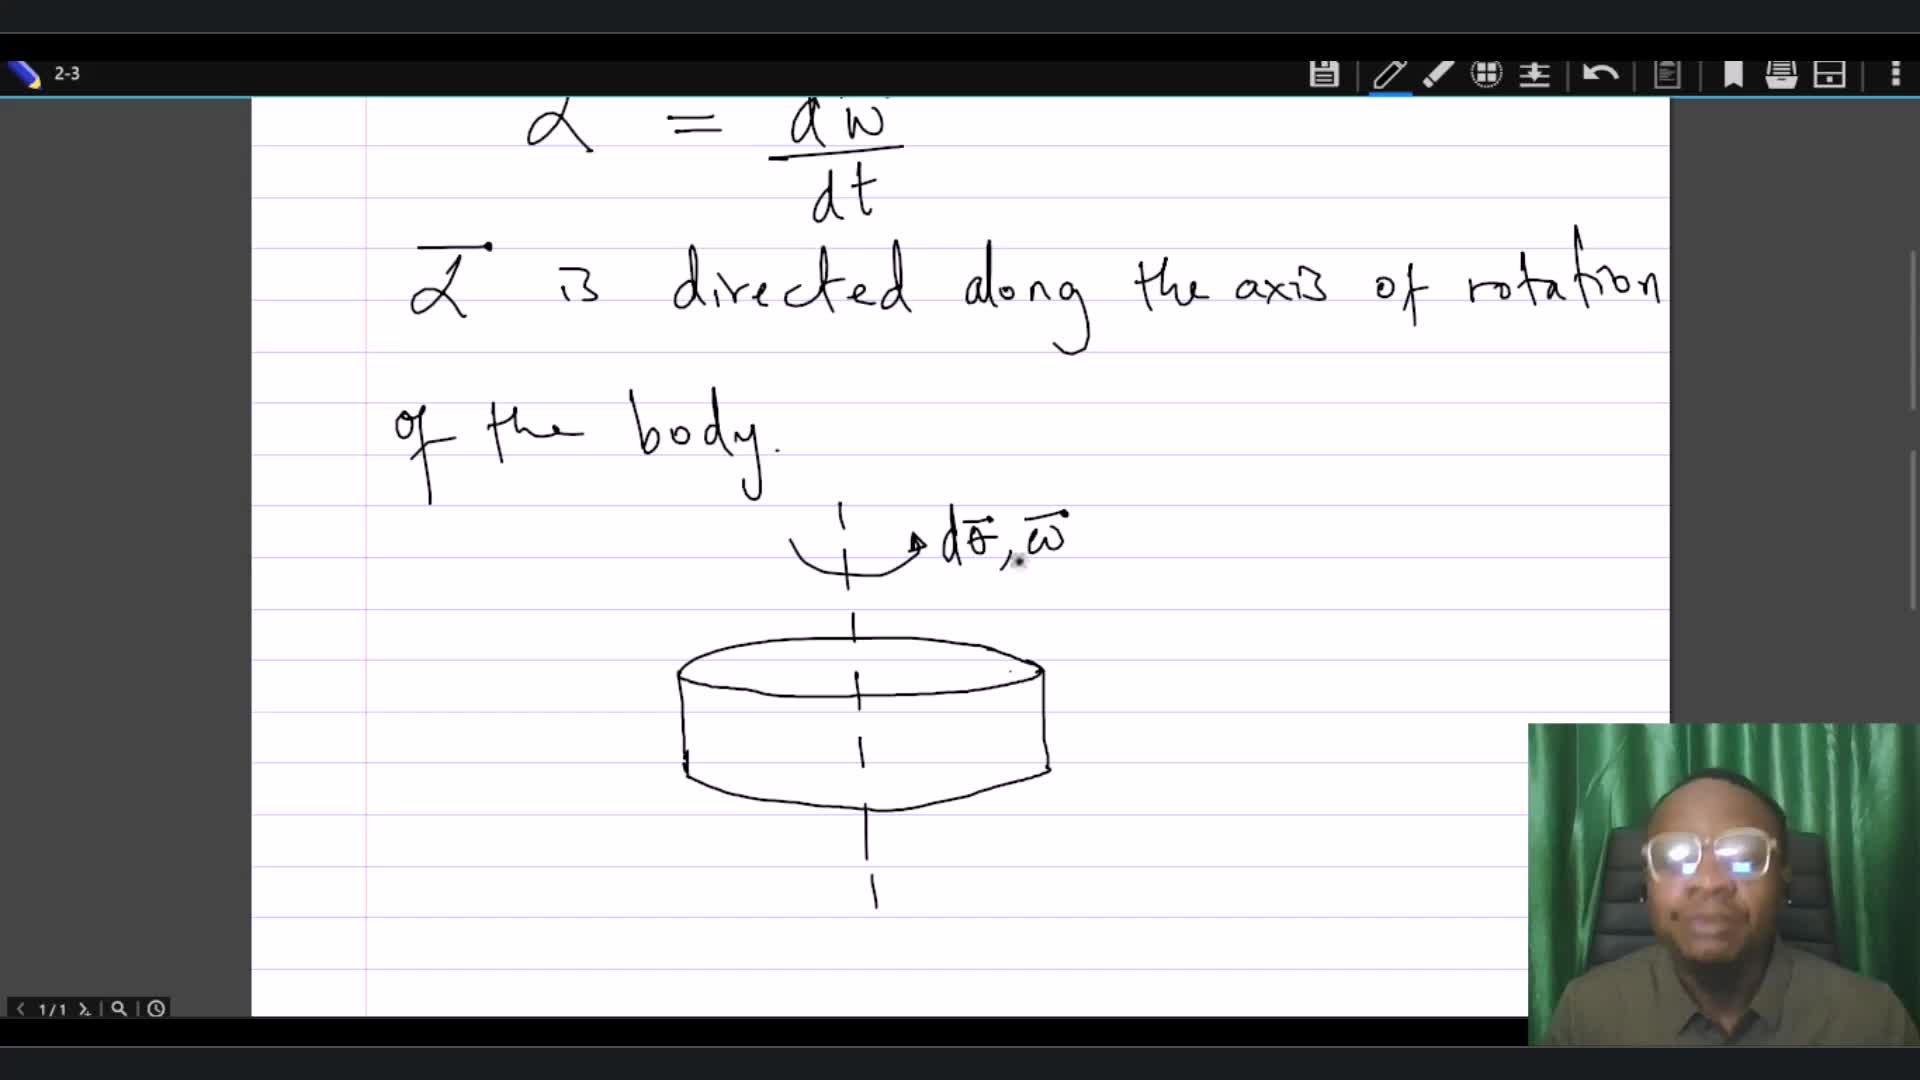 2-3
α = dw
dt
α⃗ is directed along the axis of rotation
of the body.
dθ⃗, ω⃗
1/1